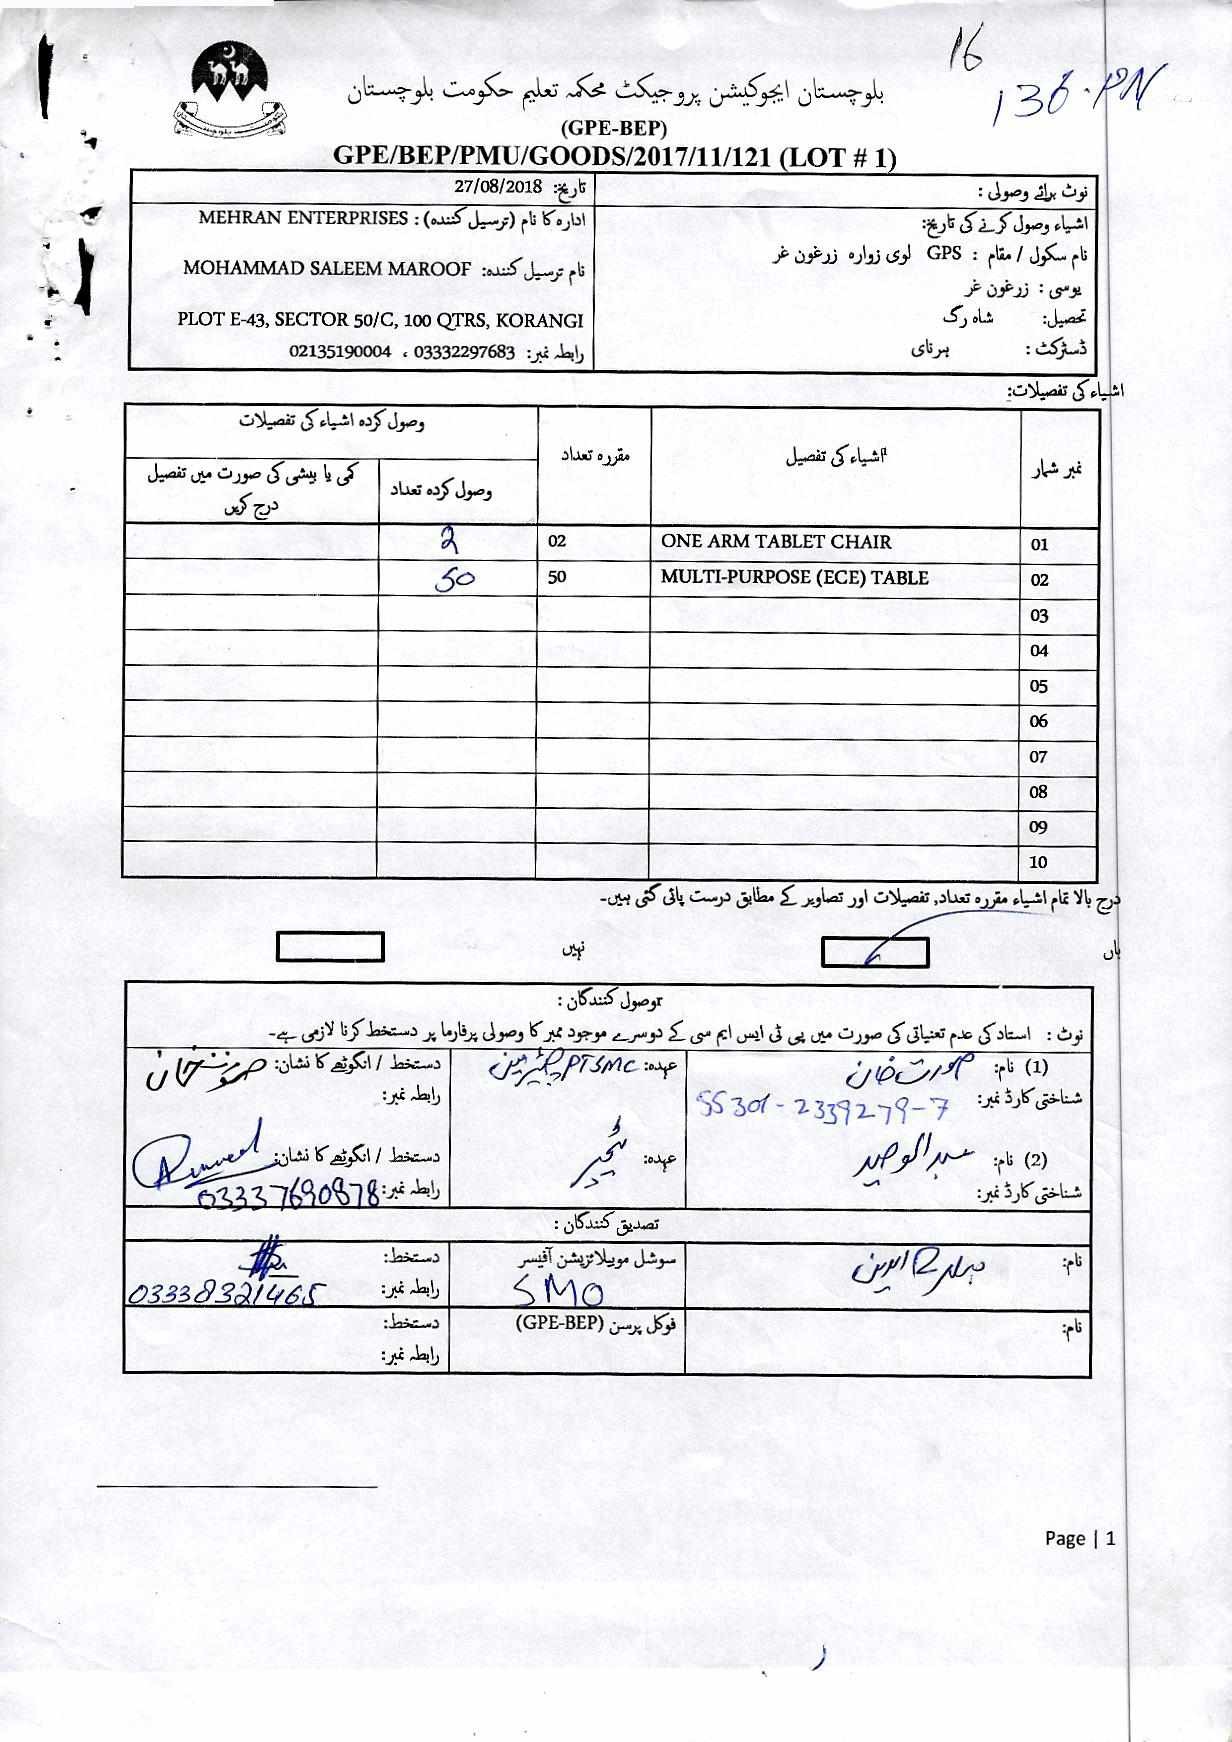 16
136-PN
بلوچستان ایجوکیشن پروجیکٹ محکمہ تعلیم حکومت بلوچستان
(GPE-BEP)
GPE/BEP/PMU/GOODS/2017/11/121 (LOT # 1)
نوٹ برائے وصولی :
تاریخ: 27/08/2018
اشیاء وصول کرنے کی تاریخ:
نام سکول / مقام : GPS لوی زوارہ زرغون غر
یوسی : زرغون غر
تحصیل: شاہ رگ
ڈسٹرکٹ : ہرنای
ادارہ کا نام (ترسیل کنندہ) : MEHRAN ENTERPRISES
نام ترسیل کنندہ: MOHAMMAD SALEEM MAROOF
PLOT E-43, SECTOR 50/C, 100 QTRS, KORANGI
رابطہ نمبر: 03332297683 ، 02135190004
اشیاء کی تفصیلات:
نمبر شمار اشیاء کی تفصیل مقررہ تعداد وصول کردہ اشیاء کی تفصیلات
وصول کردہ تعداد کمی یا بیشی کی صورت میں تفصیل
درج کریں
01 ONE ARM TABLET CHAIR 02 2
02 MULTI-PURPOSE (ECE) TABLE 50 50
03
04
05
06
07
08
09
10
درج بالا تمام اشیاء مقررہ تعداد, تفصیلات اور تصاویر کے مطابق درست پائی گئی ہیں۔
ہاں نہیں
وصول کنندگان :
نوٹ : استاد کی عدم تعنیاتی کی صورت میں پی ٹی ایس ایم سی کے دوسرے موجود ممبر کا وصولی پرفارما پر دستخط کرنا لازمی ہے۔
(1) نام: صورت خان عہدہ: PTSMC چیئرمین دستخط / انگوٹھے کا نشان:
شناختی کارڈ نمبر: 55301-2339279-7 رابطہ نمبر:
(2) نام: عبدالوحید عہدہ: ٹیچر دستخط / انگوٹھے کا نشان:
شناختی کارڈ نمبر: رابطہ نمبر: 03337690878
تصدیق کنندگان :
نام: سوشل موبیلائزیشن آفیسر دستخط:
SMO رابطہ نمبر: 03338321465
نام: فوکل پرسن (GPE-BEP) دستخط:
رابطہ نمبر:
Page | 1